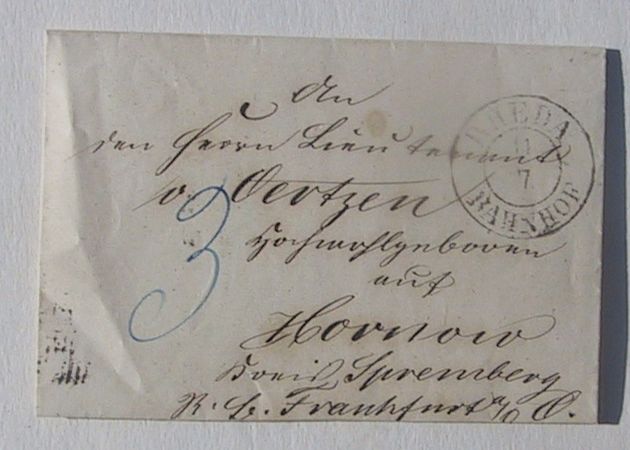 An
den Herrn Lieutenant
v. Oertzen
Hochwohlgeboren
auf
Hornow
Kreis Spremberg
R. Bz. Frankfurt a/O.
3
RHEDA
11
7
BAHNHOF